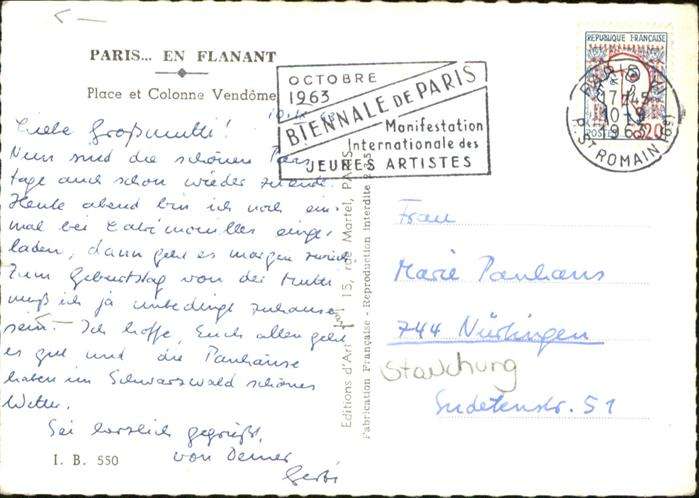 5 —
PARIS... EN FLANANT
Place et Colonne Vendôme
OCTOBRE
1963
BIENNALE DE PARIS
Manifestation
Internationale des
JEUNES ARTISTES
REPUBLIQUE FRANÇAISE
POSTES
0,20
PARIS
17H45
10-9
1963
R. ST ROMAIN (6e)
Liebe Großmutti!
Nun sind die schönen Paris
tage auch schon wieder zuende.
Heute abend bin ich noch ein-
mal bei einge-
laden, dann geht es morgen zurück
Zum Geburtstag von der Mutti
muß ich ja unbedingt zuhause
sein. — Ich hoffe, Euch allen geht
es gut und die Panhäuse
haben im Schwarzwald schönes
Wetter.
Sei herzlich gegrüßt
von Deiner
Gerbi
I. B. 550
Editions d'Art 15, rue Martel, PARIS
Fabrication Française - Reproduction Interdite
Frau
Marie Panhans
744 Nürtingen
Stauchung
Sudetenstr. 51